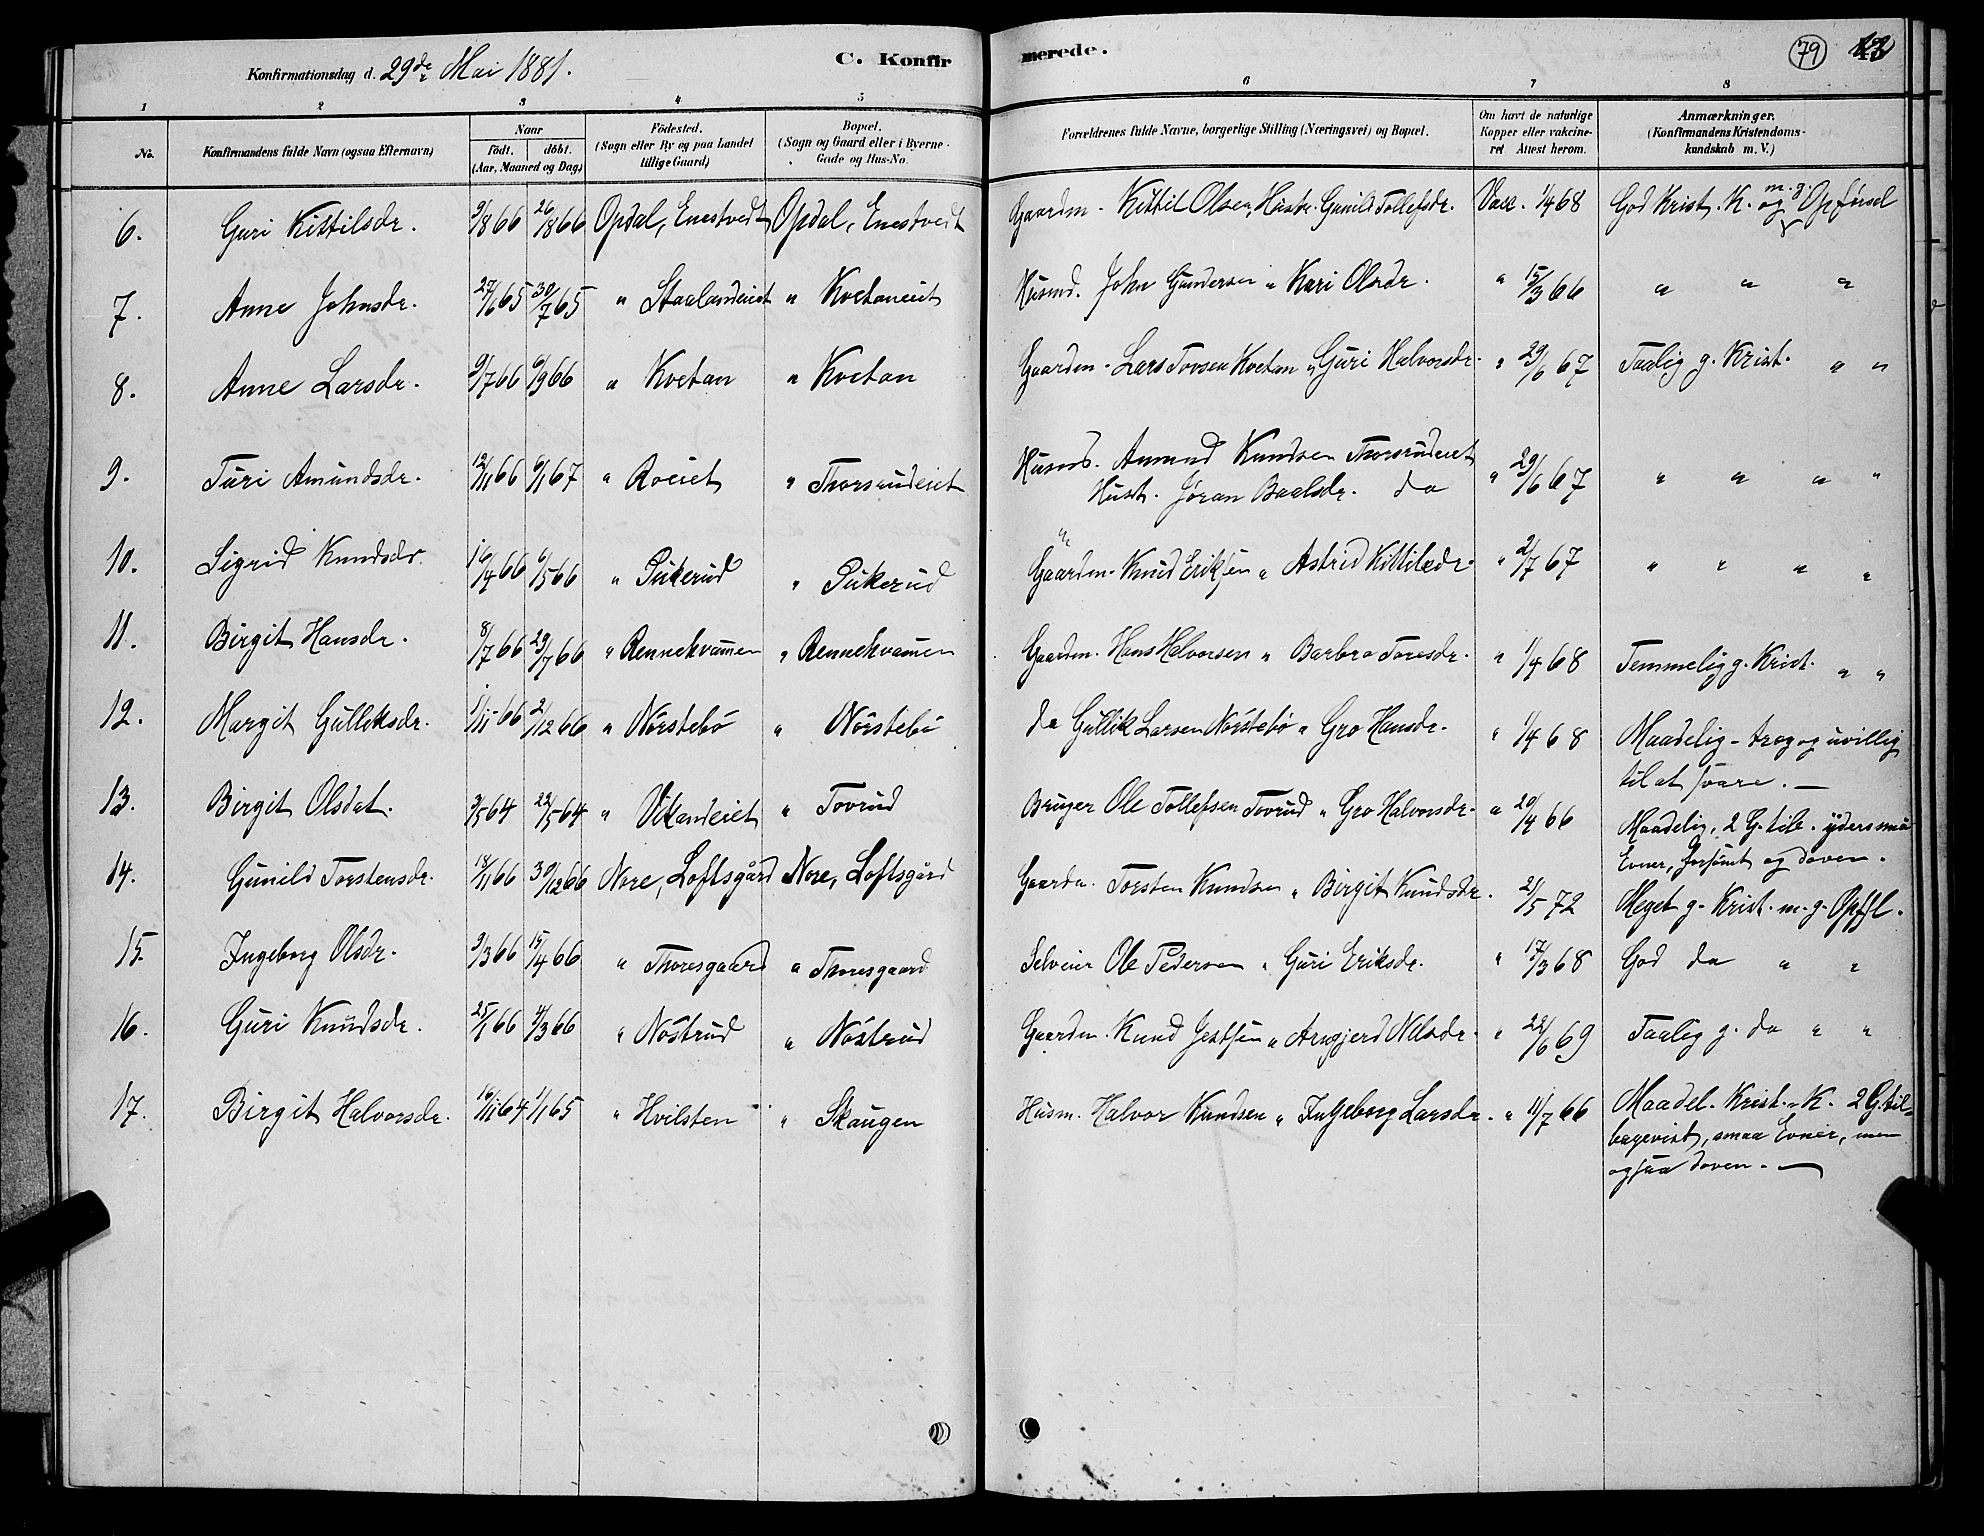 Konfirmationsdag d. 29de Mai 1881. C. Konfirmerede. 79
1 2 3 4 5 6 7 8
No. Konfirmandens fulde Navn (ogsaa Efternavn) Naar født. døbt. (Aar, Maaned og Dag) Födested. (Sogn eller By og paa Landet tillige Gaard) Bopæl. (Sogn og Gaard eller i Byerne Gade og Hus-No. Forældrenes fulde Navne, borgerlige Stilling (Næringsvei) og Bopæl. Om havt de naturlige Kopper eller vakcineret Attest herom. Anmærkninger. (Konfirmandens Kristendomskundskab m. V.)
6. Guri Kittilsdr. 9/8 66 26/8 66 Opdal, Enestvedt Opdal, Enestvedt Gaardm. Kittil Olsen, Hustr. Gunild Tollefsdr. Vacc. 1/4 68 God Krist. K. og m. g. Opførsel
7. Anne Johnsdr. 27/6 65 30/7 65 " Staalandeiet " Kvetaneiet Husmd. John Gundersen " Kari Olsdr. " 15/3 66 " " "
8. Anne Larsdr. 9/7 66 6/9 66 " Kvetan " Kvetan Gaardm. Lars Tovsen Kvetan " Guri Halvorsdr. " 29/6 67 Taalig g. Krist. " "
9. Turi Amundsdr. 12/11 66 6/1 67 " Roeiet " Thorsrudeiet Husmd. Amund Knudsen Thorsrudeiet
Hust. Jøran Baalsdr. do " 29/6 67 " " " "
10. Sigrid Knudsdr. 16/4 66 6/5 66 " Pukerud " Pukerud Gaardm. Knud Eriksen " Astrid Kittilsdr. " 2/7 67 " " " "
11. Birgit Hansdr. 8/7 66 29/7 66 " Rennehvammen " Rennehvammen Gaardm. Hans Halvorsen " Barbro Toresdr. " 1/4 68 Temmelig g. Krist. " "
12. Margit Gulliksdr. 1/11 66 2/12 66 " Nørstebø " Nørstebø do Gullik Larsen Nørstebø " Gro Hansdr. " 1/4 68 Maadelig - treg og uvillig
til at svare. —
13. Birgit Olsdat. 3/5 64 22/5 64 " Vikandeiet " Tovrud Bruger Ole Tollefsen Tovrud " Gro Halvorsdr. " 20/4 66 Maadelig, 2 G. tilb. yders smaa
Evner, forsømt og doven.
14. Gunild Torstensdr. 18/11 66 30/12 66 Nore, Loftsgård Nore, Loftsgård Gaardm. Torsten Knudsen " Birgit Knudsdr. " 21/5 72 Meget g. Krist. m. g. Opfsl.
15. Ingeborg Olsdr. 9/3 66 15/4 66 " Thoresgaard " Thoresgaard Selveier Ole Pedersen " Guri Eriksdr. " 17/3 68 God do " "
16. Guri Knudsdr. 25/1 66 4/3 66 " Nøstrud " Nøstrud Gaardm. Knud Jestsen " Arngjerd Nilsdr. " 22/6 69 Taalig g. do " "
17. Birgit Halvorsdr. 16/11 64 1/1 65 " Hvilsten " Skaugen Husm. Halvor Knudsen " Ingeborg Larsdr. " 11/7 66 Maadel. Krist. K. 2 G. til-
bagevist, smaa Evner, men
ogsaa doven. —